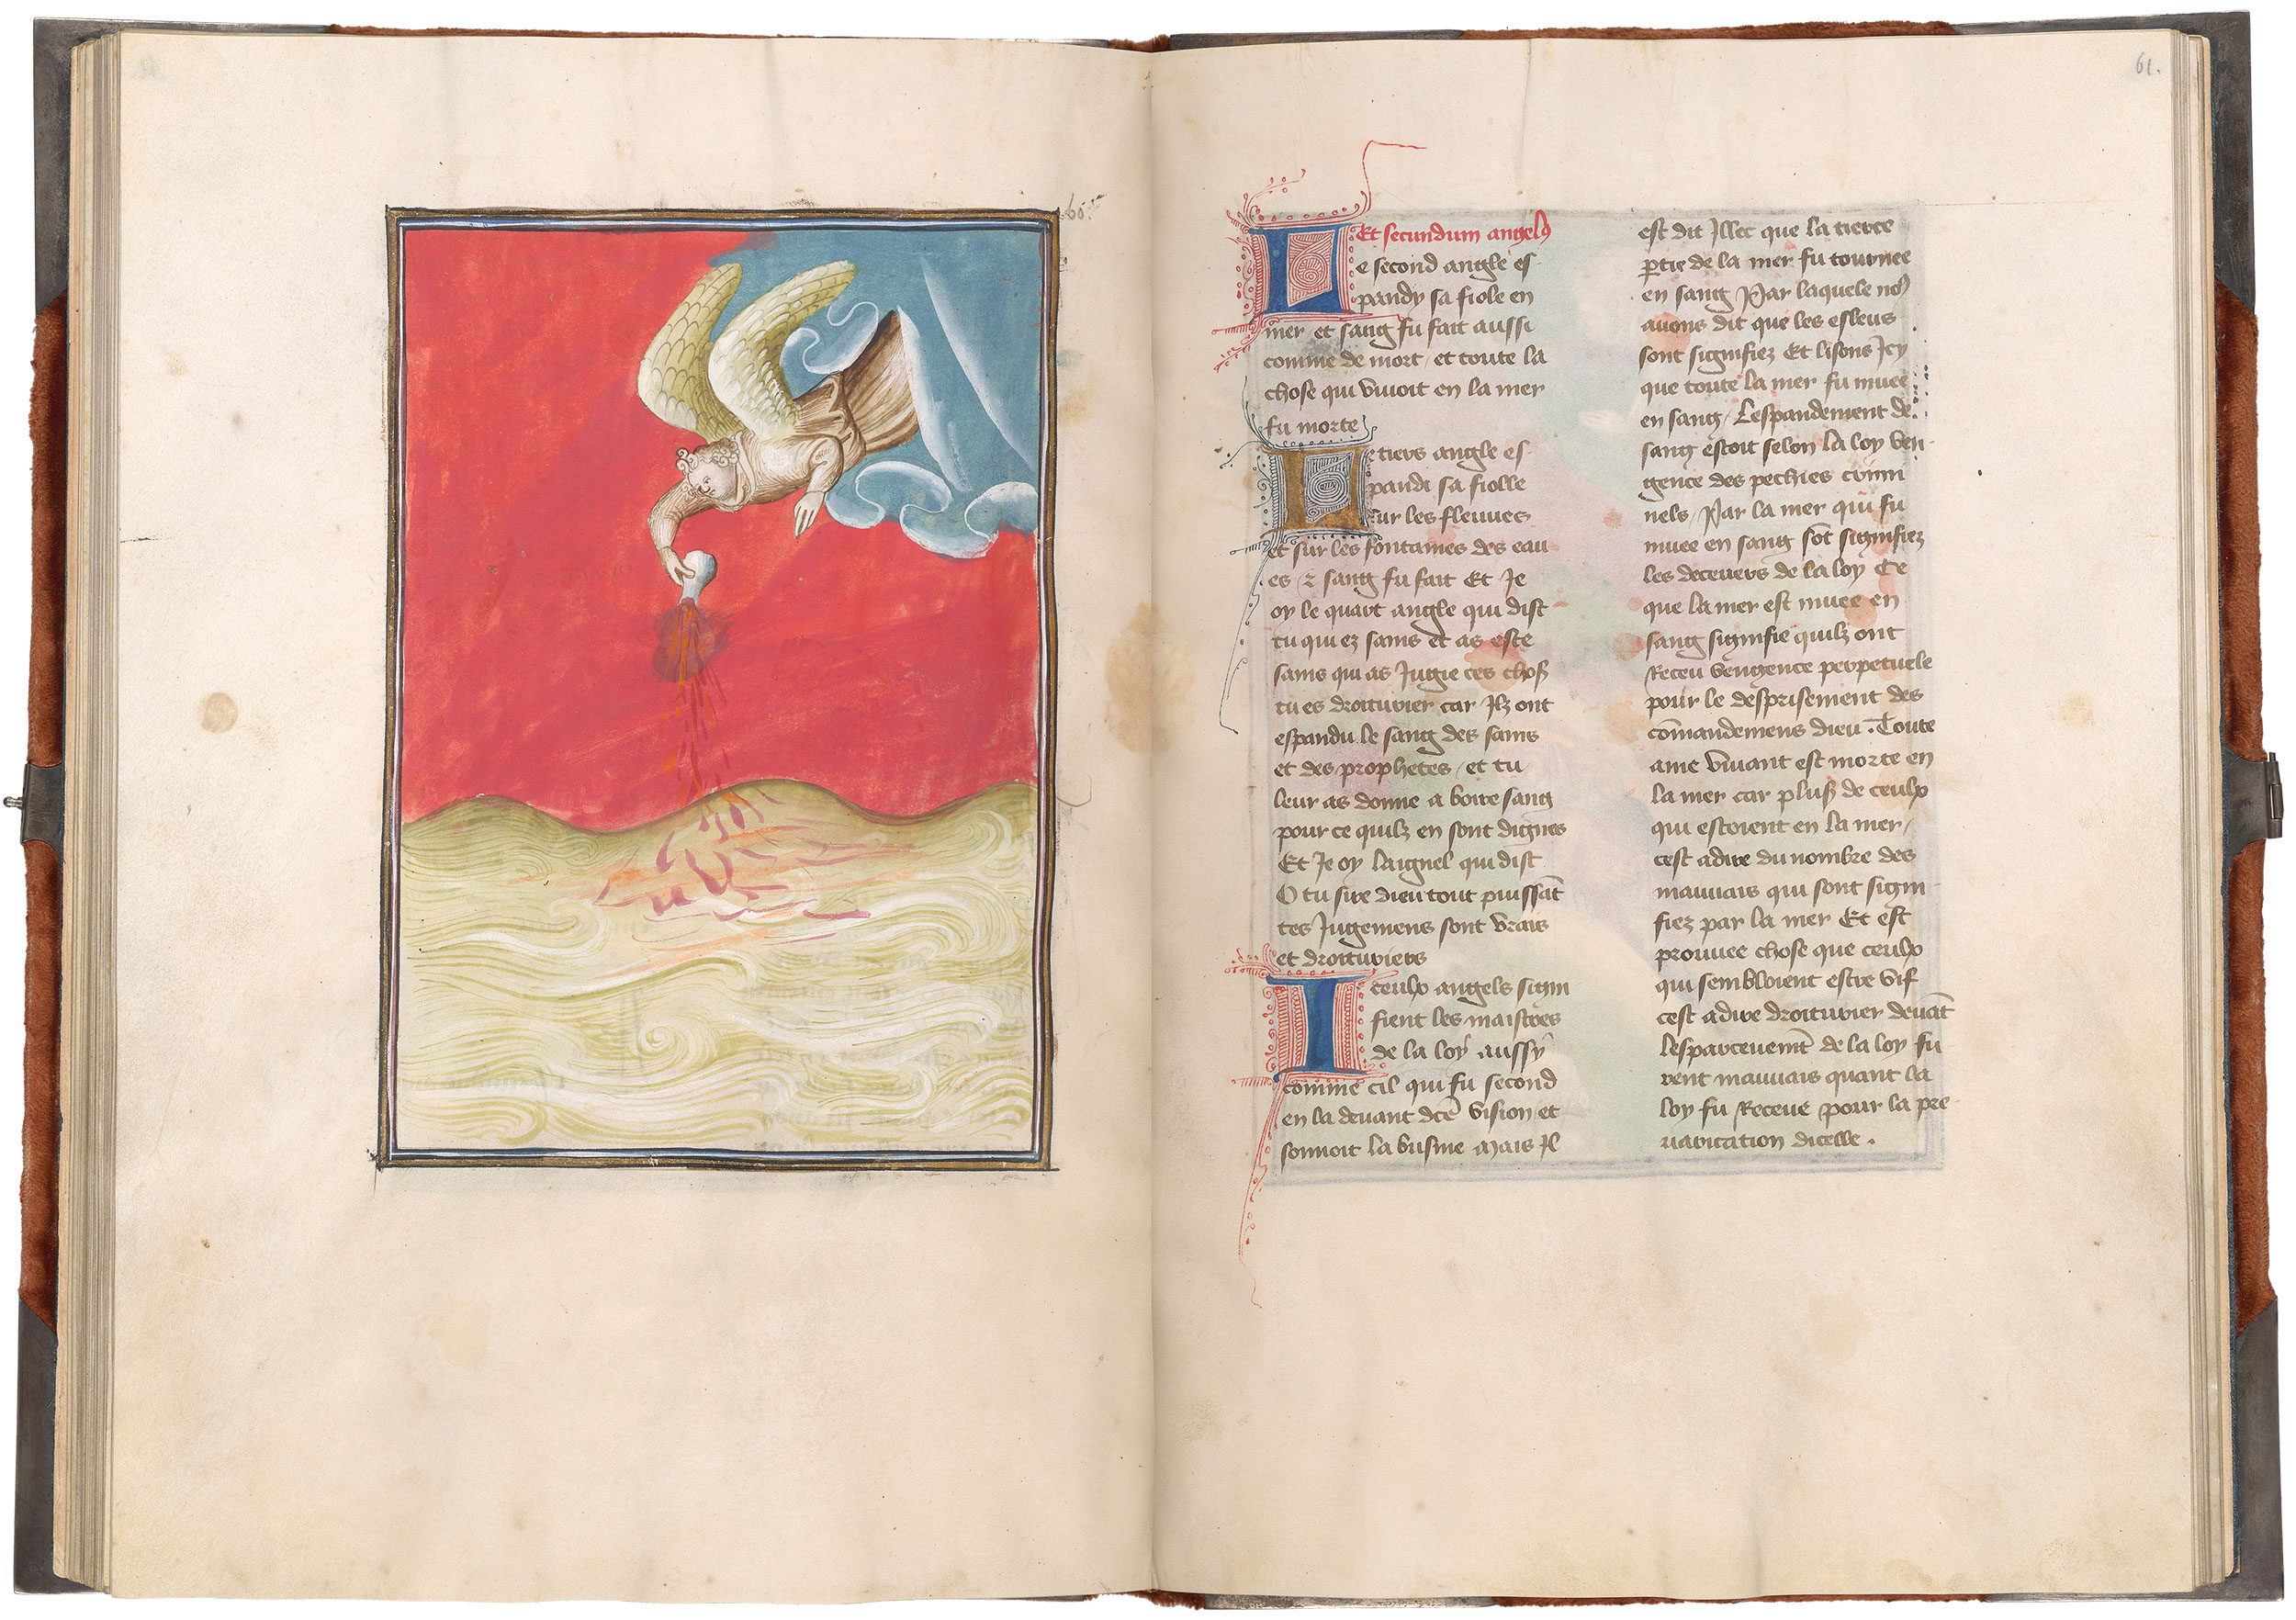 60.
61.
Et secundum angelꝰ
Le second angle es-
pandy sa fiole en
mer et sang fu fait aussi
comme de mort / et toute la
chose qui vivoit en la mer
fu morte
Le tiers angle es-
pandi sa fiolle
sur les fleuves
et sur les fontaines des eau
es / ⁊ sang fu fait Et Je
oy le quart angle qui dist
tu qui ez sains et as este
sains qui as Jugie ces choß
tu es droiturier car Jlz ont
espandu le sang des sains
et des prophetes / et tu
leur as donne a boire sang
pour ce quilz en sont dignes
Et Je oy laignel qui dist
O tu sire dieu tout puissāt
tes Jugemens sont vrais
et droituriers
I ceulx angels signi
fient les maistres
de la loy aussy
comme cil qui fu second
en la devant dcē vision / et
sonnoit la busine Mais Jl
est dit Jllec que la tierce
ꝑtie de la mer fu tournee
en sang Par laquele noꝰ
avons dit que les esleus
sont signifiez Et lisons Jcy
que toute la mer fu muee
en sang / Lespandement de
sang estoit selon la loy ven-
gence des pechies crimi
nels / Par la mer qui fu
muee en sang sōt signifiez
les deceuers de la loy Ce
que la mer est muee en
sang signifie quilz ont
Receu vengence perpetuele
pour le desprisement des
cōmandemens dieu . Toute
ame vivant est morte en
la mer car pluß de ceulx
qui estoient en la mer /
cest a dire du nombre des
mauvais qui sont signi
fiez par la mer Et est
prouvee chose que ceulx
qui sembloient estre vif
cest a dire droiturier devāt
lesparcevemēt de la loy fu
rent mauvais quant la
loy fu Receue pour la pre
varication dicelle .